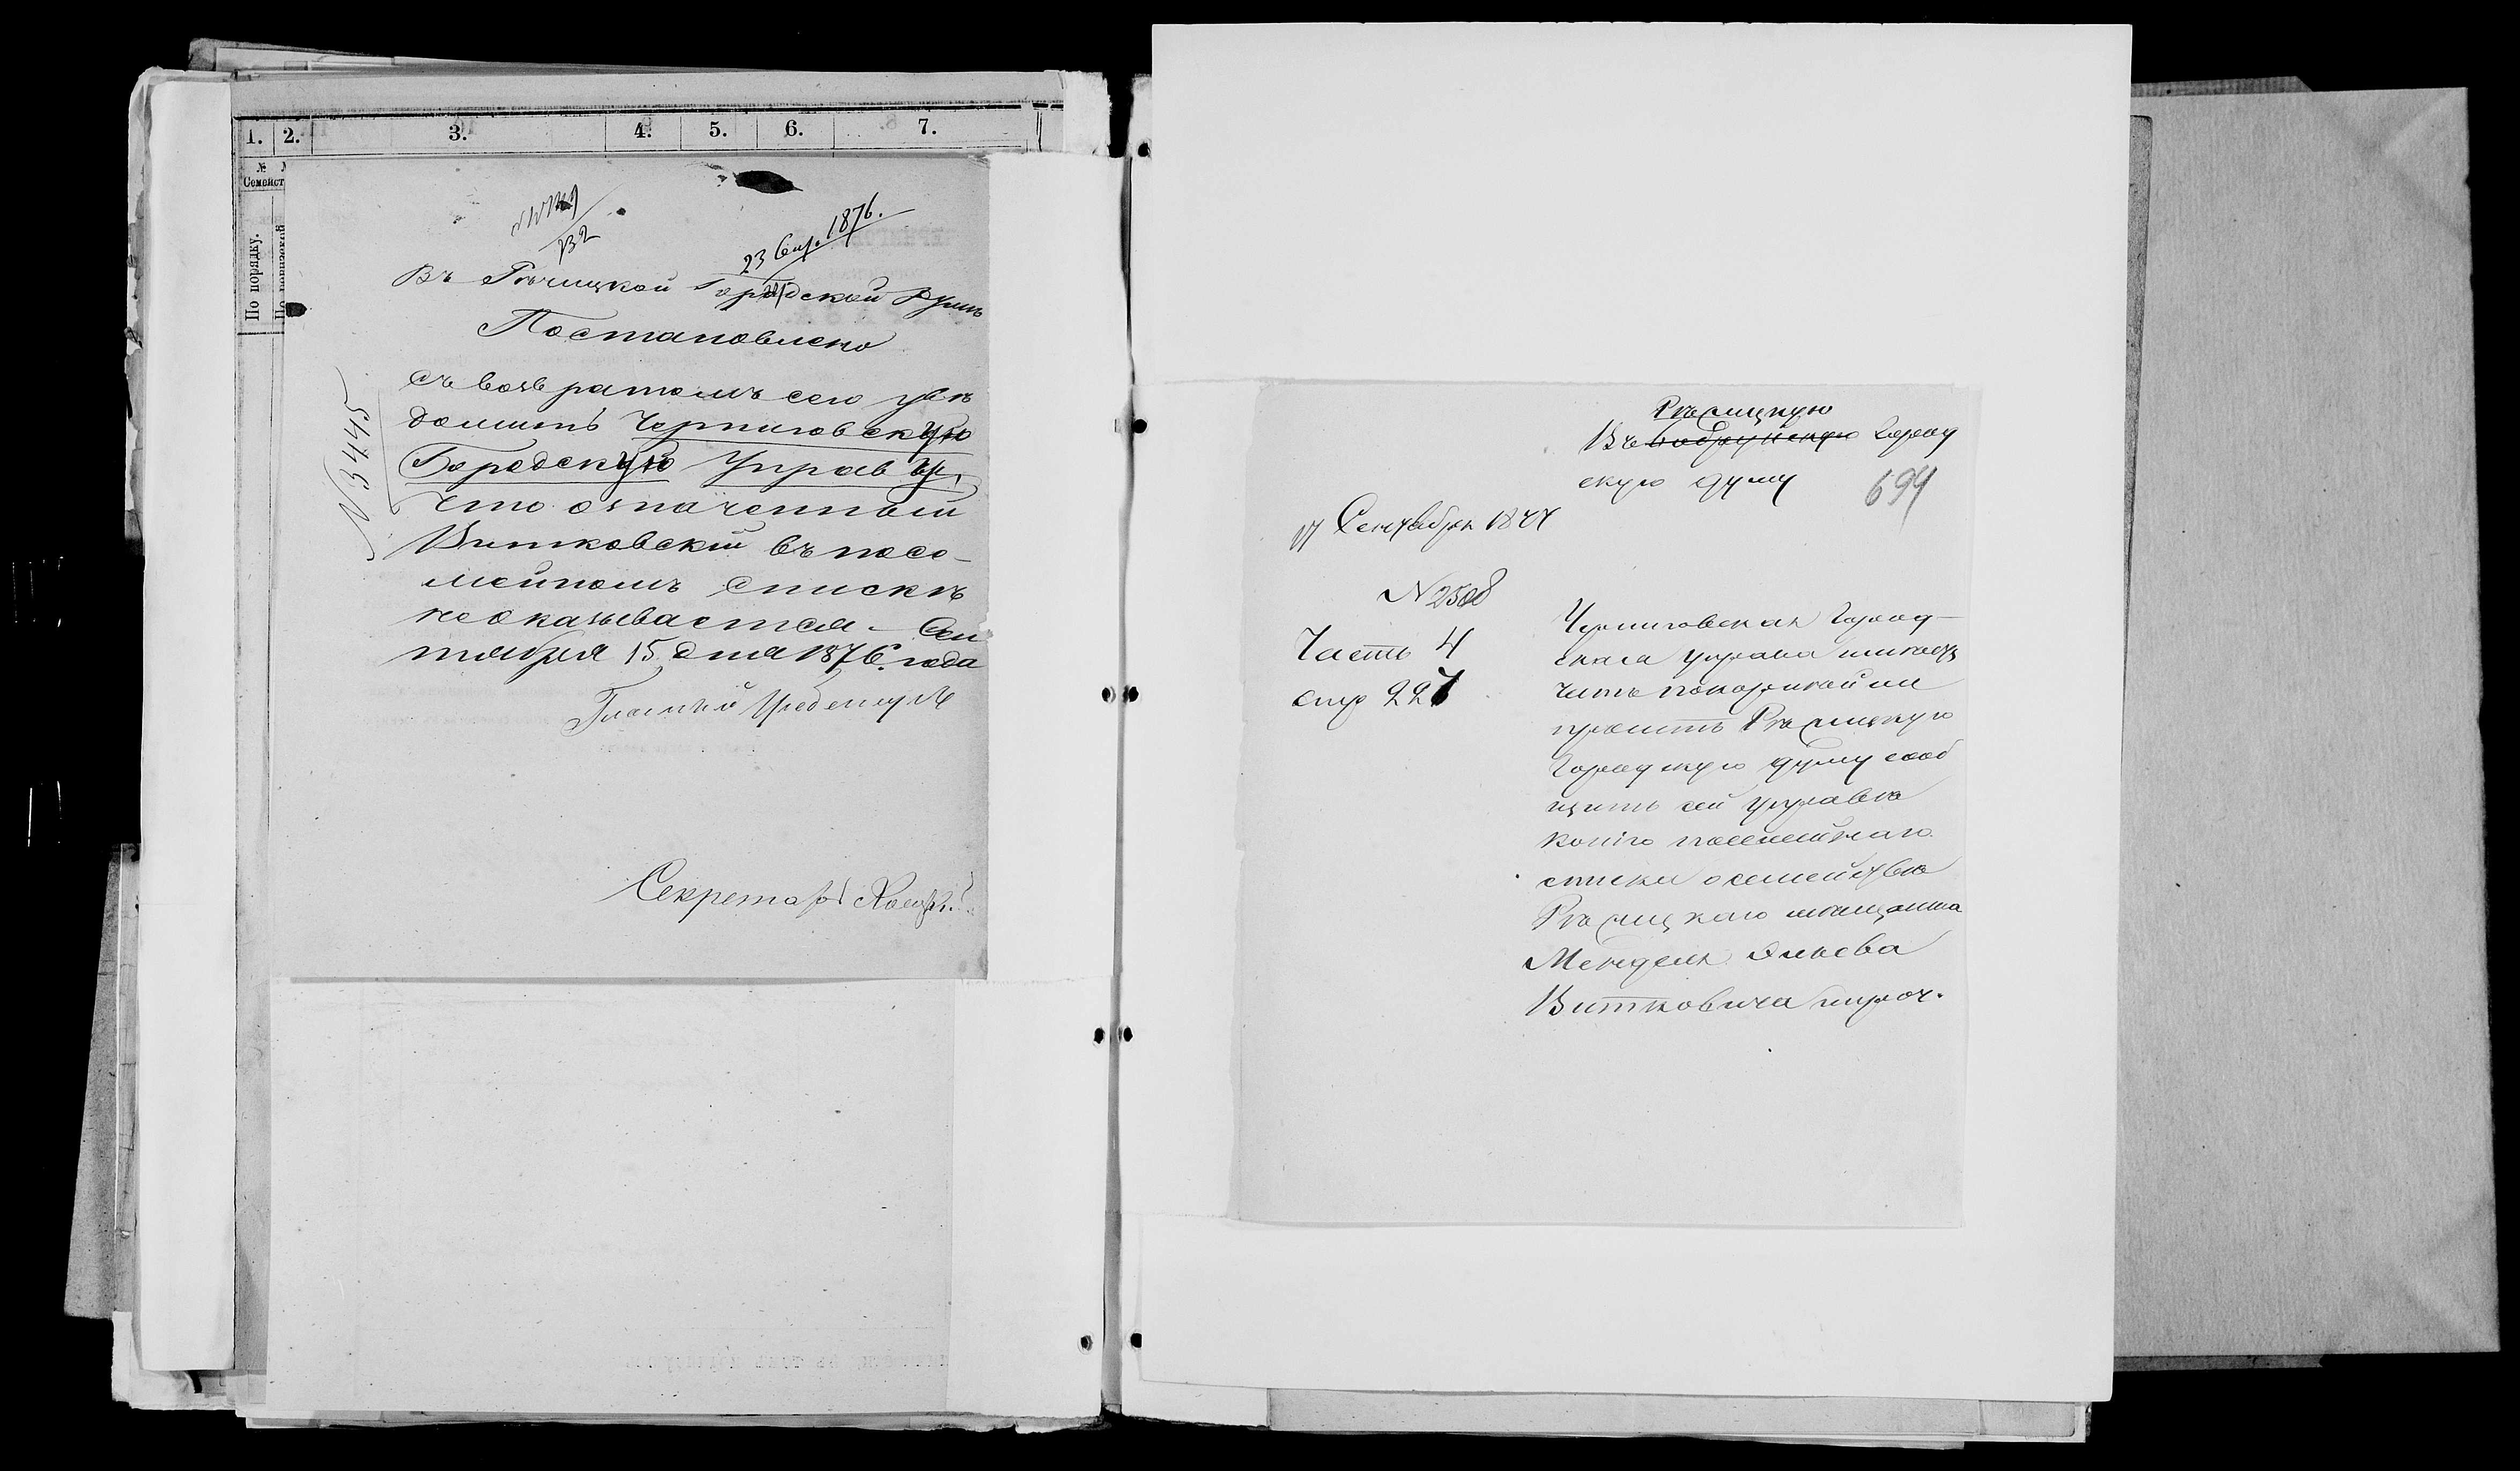 1. 2. 3. 4. 5. 6. 7.
№
Семейст
По порядку.
23 Сен. 1876.
Въ Рѣчицкой Городской Думѣ
Постановлено
съ возвратомъ сего увѣ
домить Черниговскую
Городскую Управу,
что означенный
Витковскій въ посе-
мейномъ спискѣ
неоказывается. Сен
тября 15 дня 1876 года
№ 3445
Гласный
Секретарь
Рѣчицкую
Въ Бобруйскую Город
скую думу
694
17 Сентября 1877
№ 2508
Часть 4
стр 227
Черниговская Город-
ская управа имѣетъ
честь покорнѣйше
просить Рѣчицкую
Городскую думу сооб
щить сей управѣ
копію посемейнаго
списка о семействѣ
Рѣчицкаго мѣщанина
Менделя Эльева
Витковича и проч.